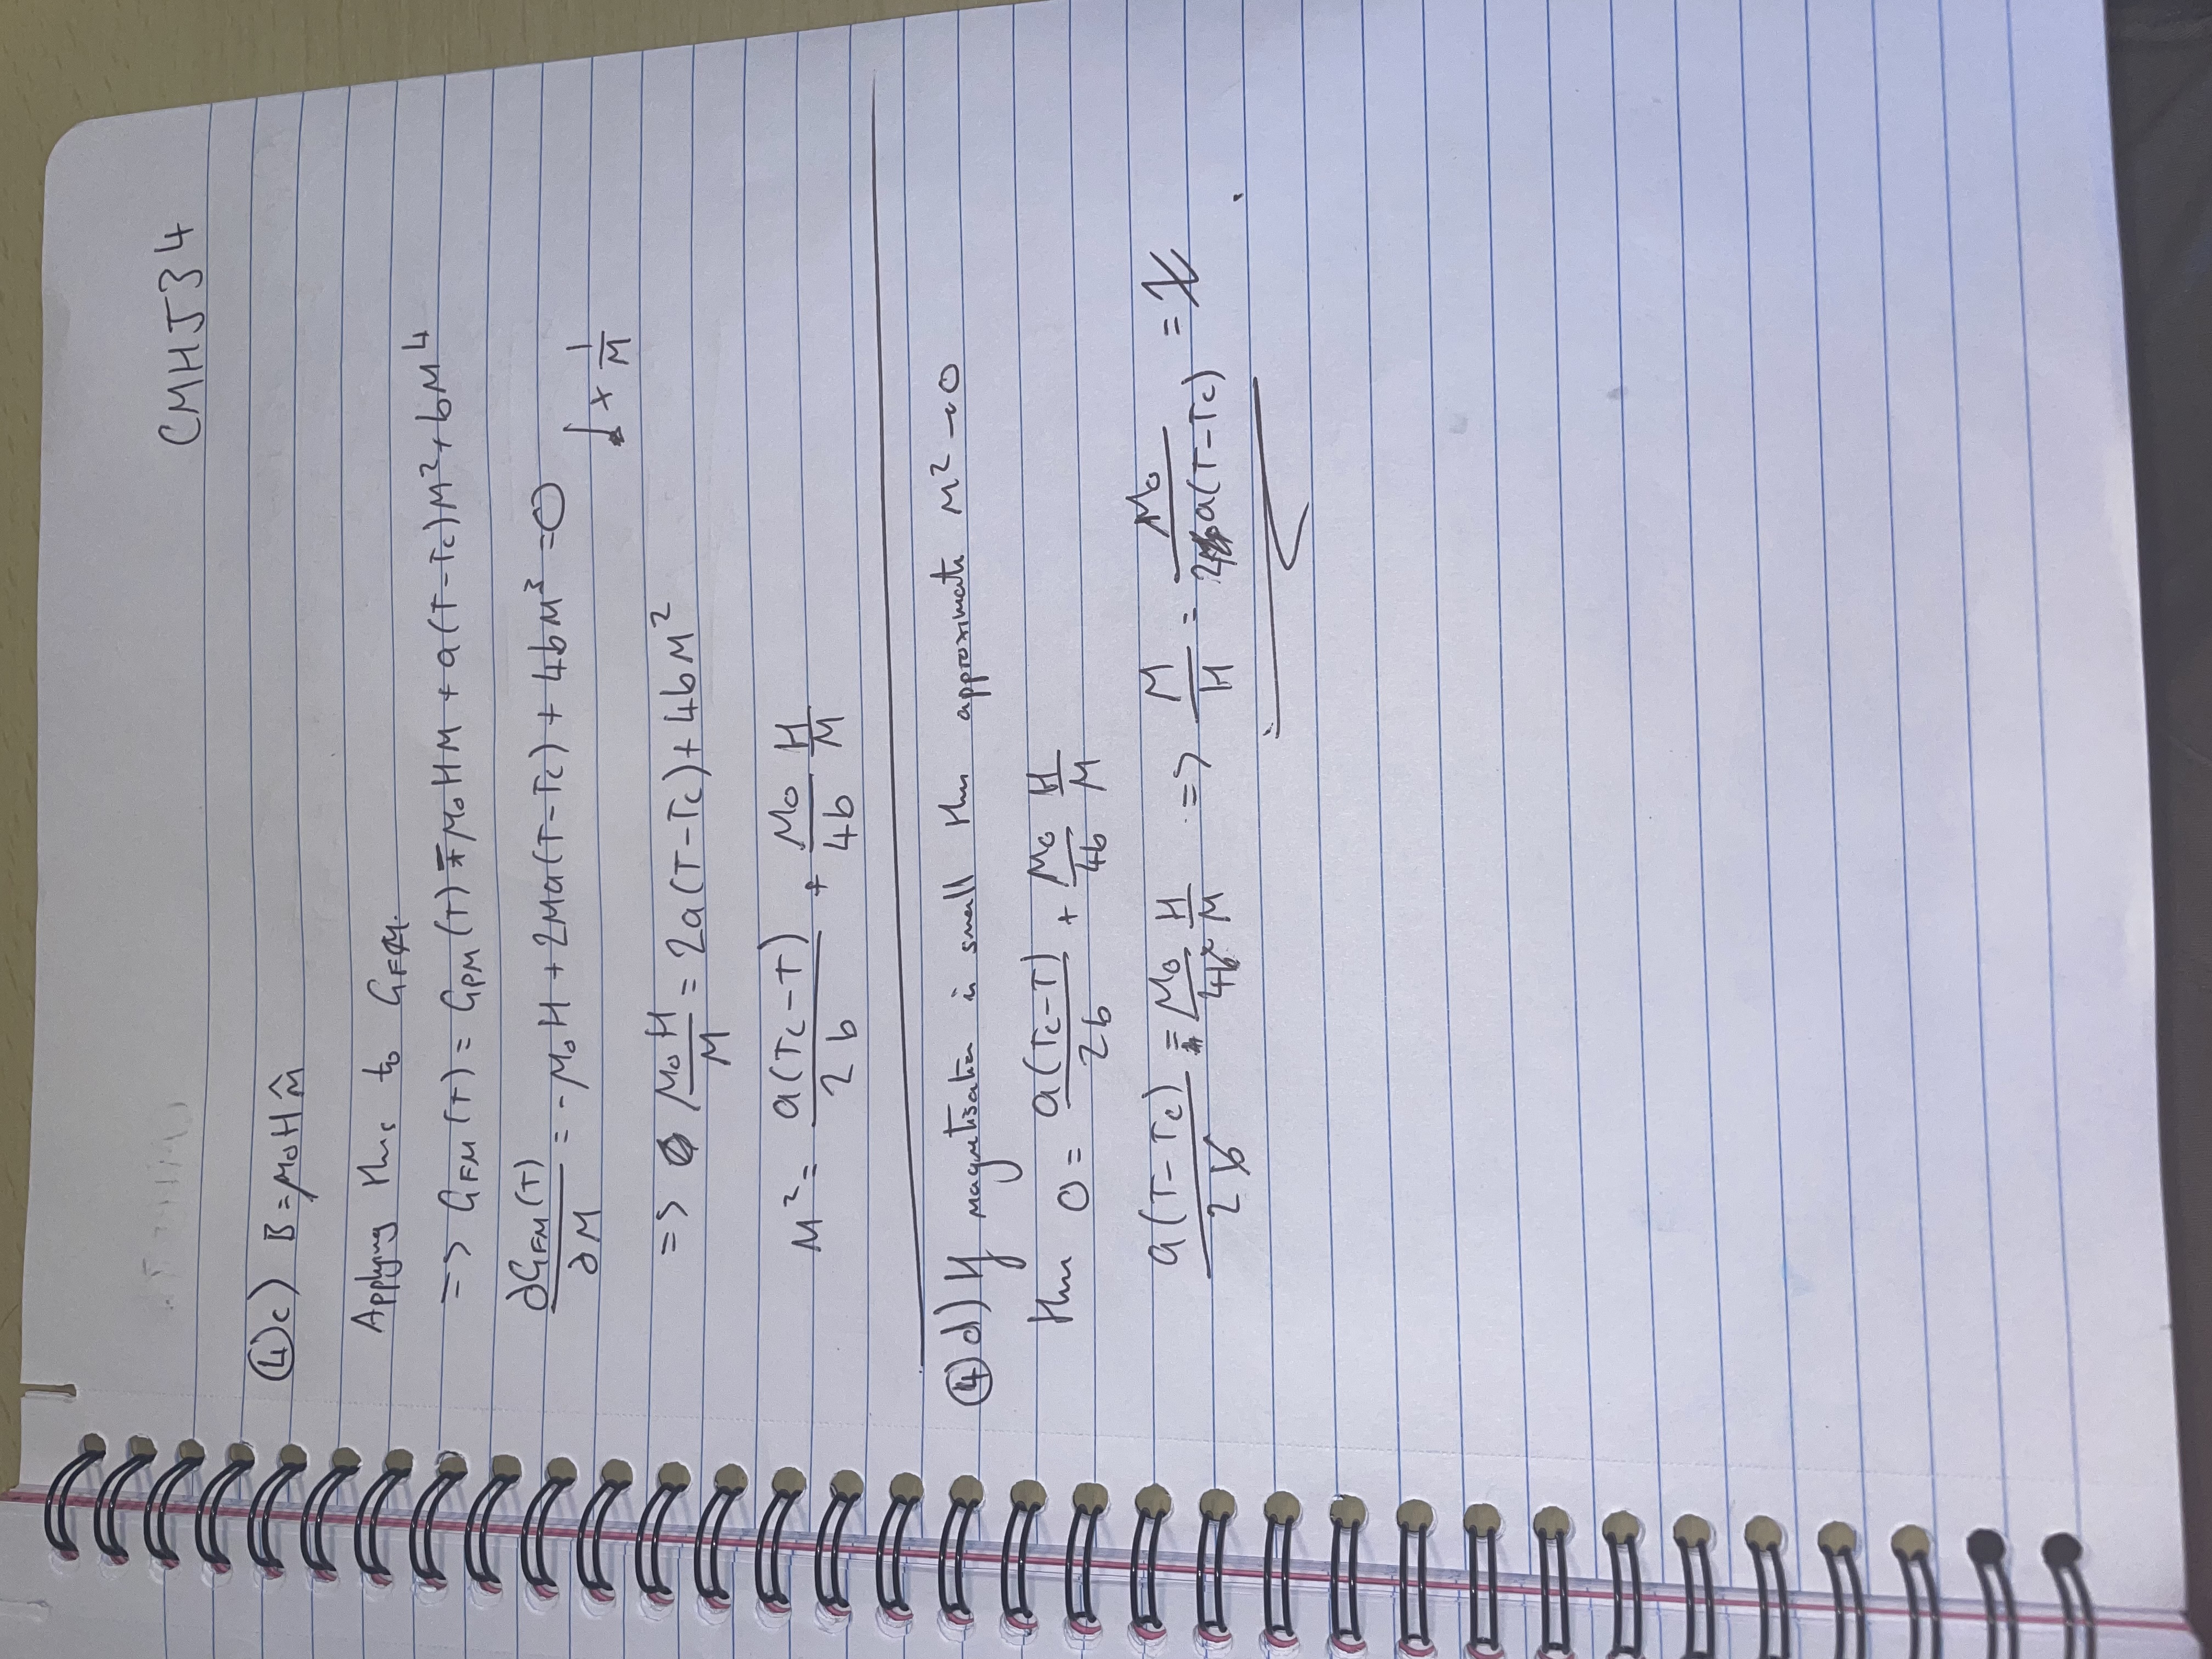 CMHJ34
④c) B = μ₀H M̂
Applying this to G_FM.
=> G_FM(T) = G_PM(T) - μ₀HM + a(T-Tc)M² + bM⁴
∂G_FM(T)/∂M = -μ₀H + 2Ma(T-Tc) + 4bM³ = 0
↓ × 1/M
=> μ₀H/M = 2a(T-Tc) + 4bM²
M² = a(Tc-T)/2b + μ₀/4b H/M
④d) If magnetisation is small then approximate M² → 0
then 0 = a(Tc-T)/2b + μ₀/4b H/M
a(T-Tc)/2b = μ₀/4b H/M => M/H = μ₀/2a(T-Tc) = χ